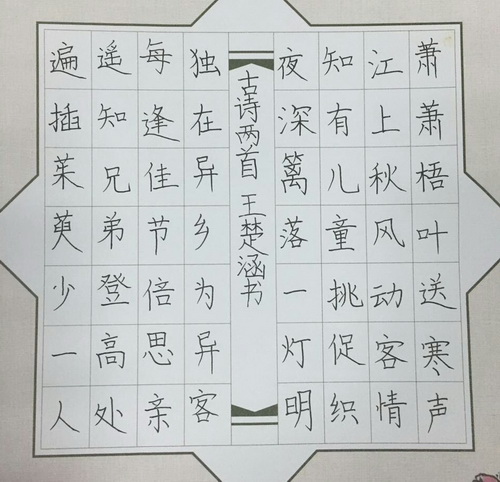 萧萧梧叶送寒声
江上秋风动客情
知有儿童挑促织
夜深篱落一灯明
古诗两首 王楚涵书
独在异乡为异客
每逢佳节倍思亲
遥知兄弟登高处
遍插茱萸少一人